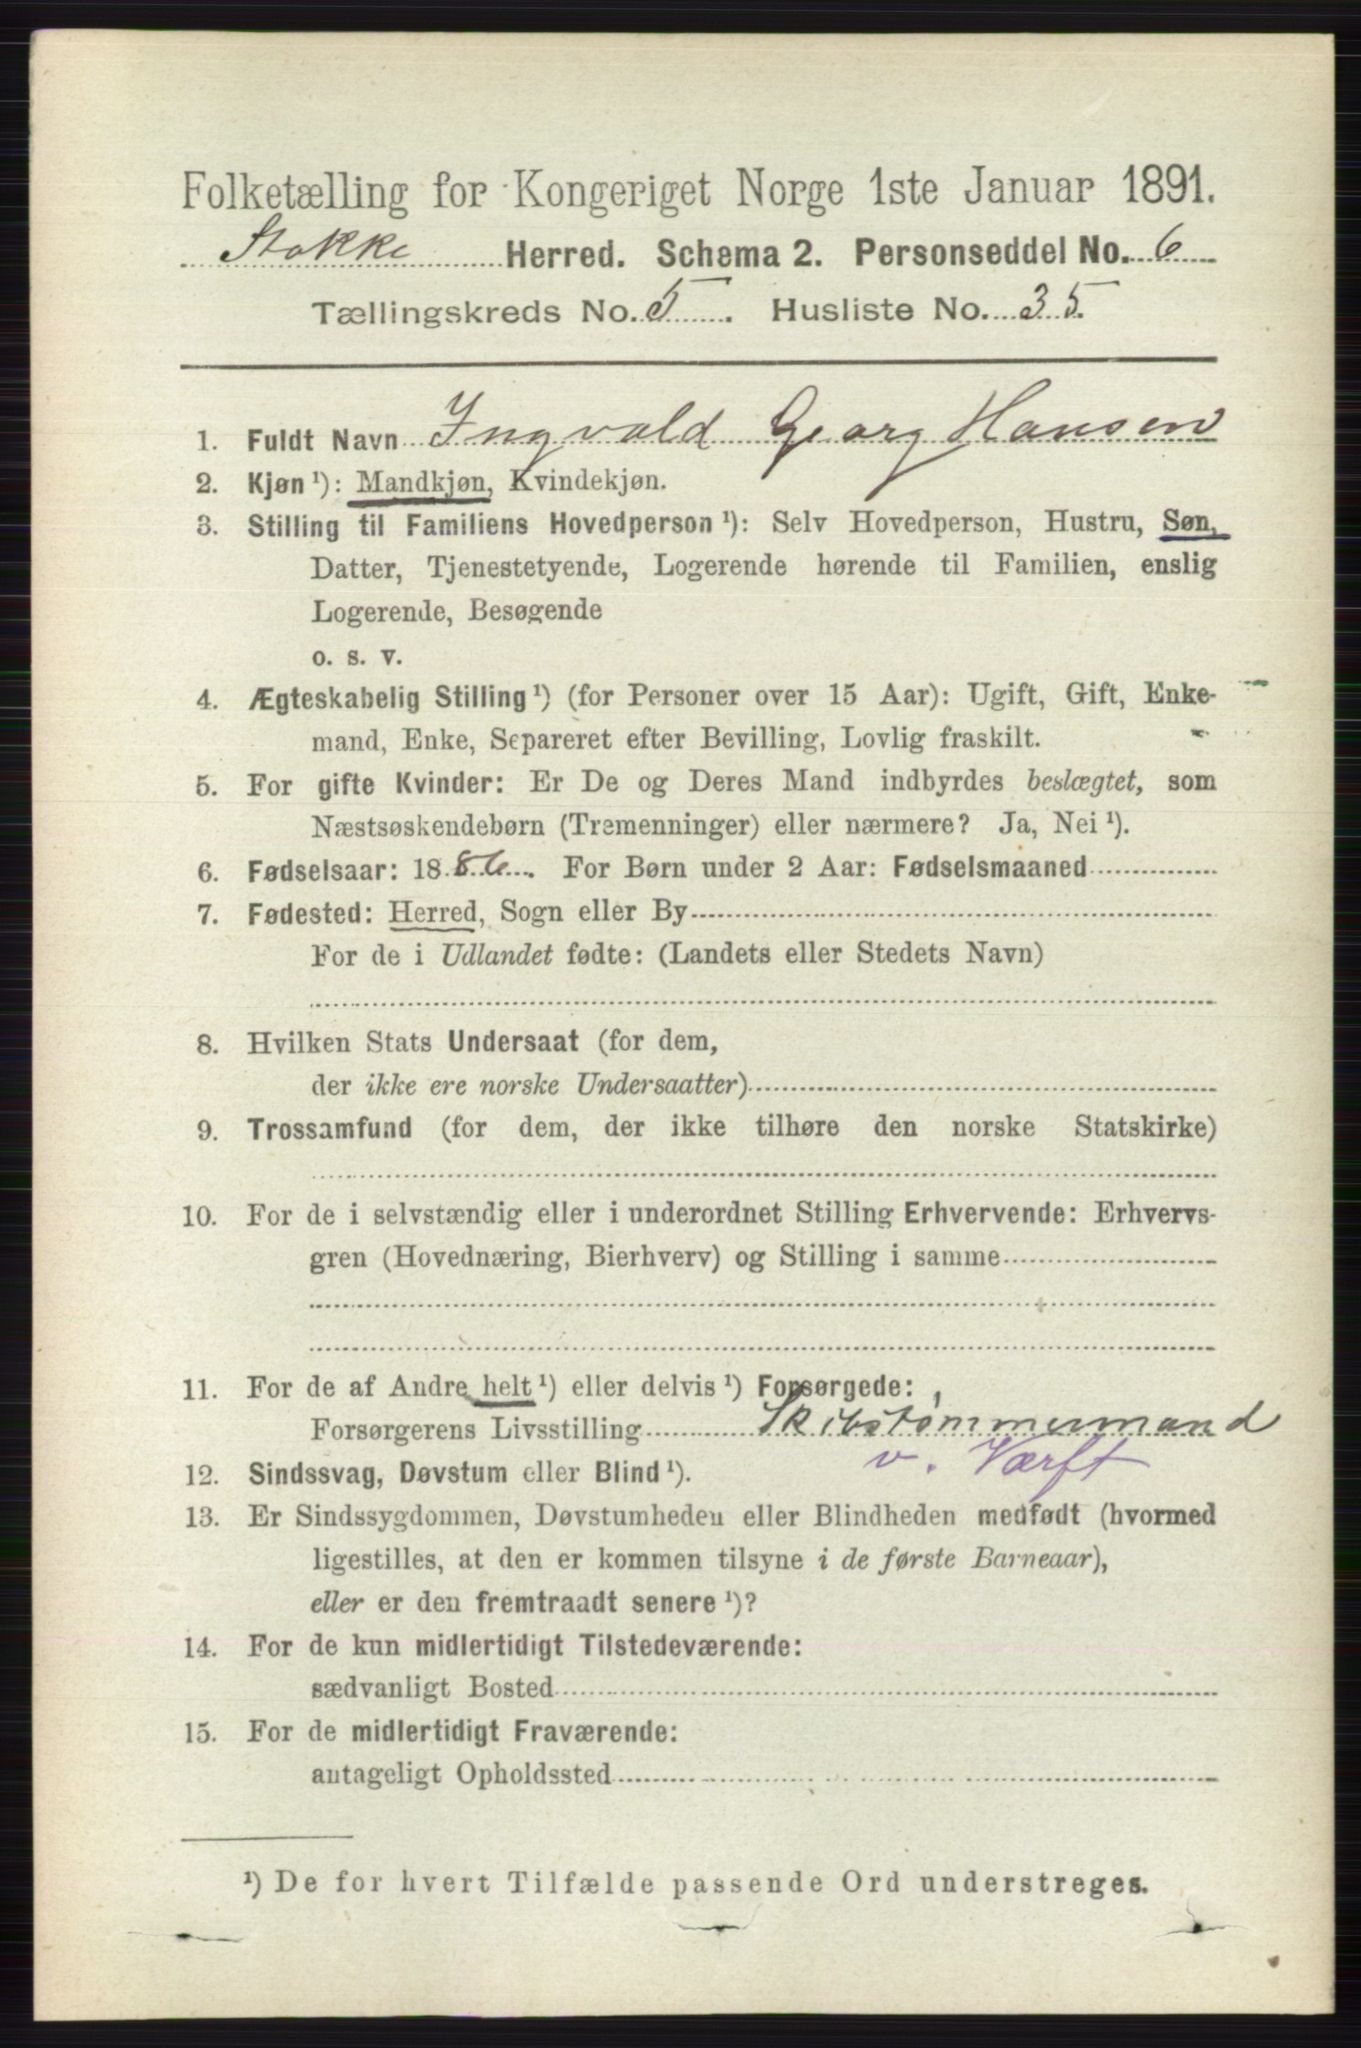 Folketælling for Kongeriget Norge 1ste Januar 1891.
Stokke Herred. Schema 2. Personseddel No. 6
Tællingskreds No. 5. Husliste No. 35.
1. Fuldt Navn Ingvald Georg Hansen
2. Kjøn ¹): Mandkjøn, Kvindekjøn.
3. Stilling til Familiens Hovedperson ¹): Selv Hovedperson, Hustru, Søn,
Datter, Tjenestetyende, Logerende hørende til Familien, enslig
Logerende, Besøgende
o. s. v.
4. Ægteskabelig Stilling ¹) (for Personer over 15 Aar): Ugift, Gift, Enke-
mand, Enke, Separeret efter Bevilling, Lovlig fraskilt.
5. For gifte Kvinder: Er De og Deres Mand indbyrdes beslægtet, som
Næstsøskendebørn (Tremenninger) eller nærmere? Ja, Nei ¹).
6. Fødselsaar: 1886. For Børn under 2 Aar: Fødselsmaaned
7. Fødested: Herred, Sogn eller By
For de i Udlandet fødte: (Landets eller Stedets Navn)
8. Hvilken Stats Undersaat (for dem,
der ikke ere norske Undersaatter)
9. Trossamfund (for dem, der ikke tilhøre den norske Statskirke)
10. For de i selvstændig eller i underordnet Stilling Erhvervende: Erhvervs-
gren (Hovednæring, Bierhverv) og Stilling i samme
11. For de af Andre helt ¹) eller delvis ¹) Forsørgede:
Forsørgerens Livsstilling Skibstømmermand
v. Værft
12. Sindssvag, Døvstum eller Blind ¹).
13. Er Sindssygdommen, Døvstumheden eller Blindheden medfødt (hvormed
ligestilles, at den er kommen tilsyne i de første Barneaar),
eller er den fremtraadt senere ¹)?
14. For de kun midlertidigt Tilstedeværende:
sædvanligt Bosted
15. For de midlertidigt Fraværende:
antageligt Opholdssted
¹) De for hvert Tilfælde passende Ord understreges.